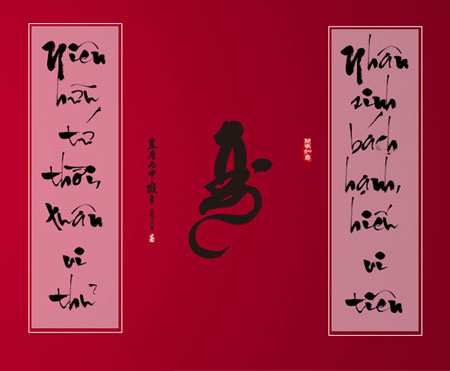 Niên
hữu
tứ
thời,
Xuân
vi
thủ
Nhân
sinh
bách
hạnh,
hiếu
vi
tiên